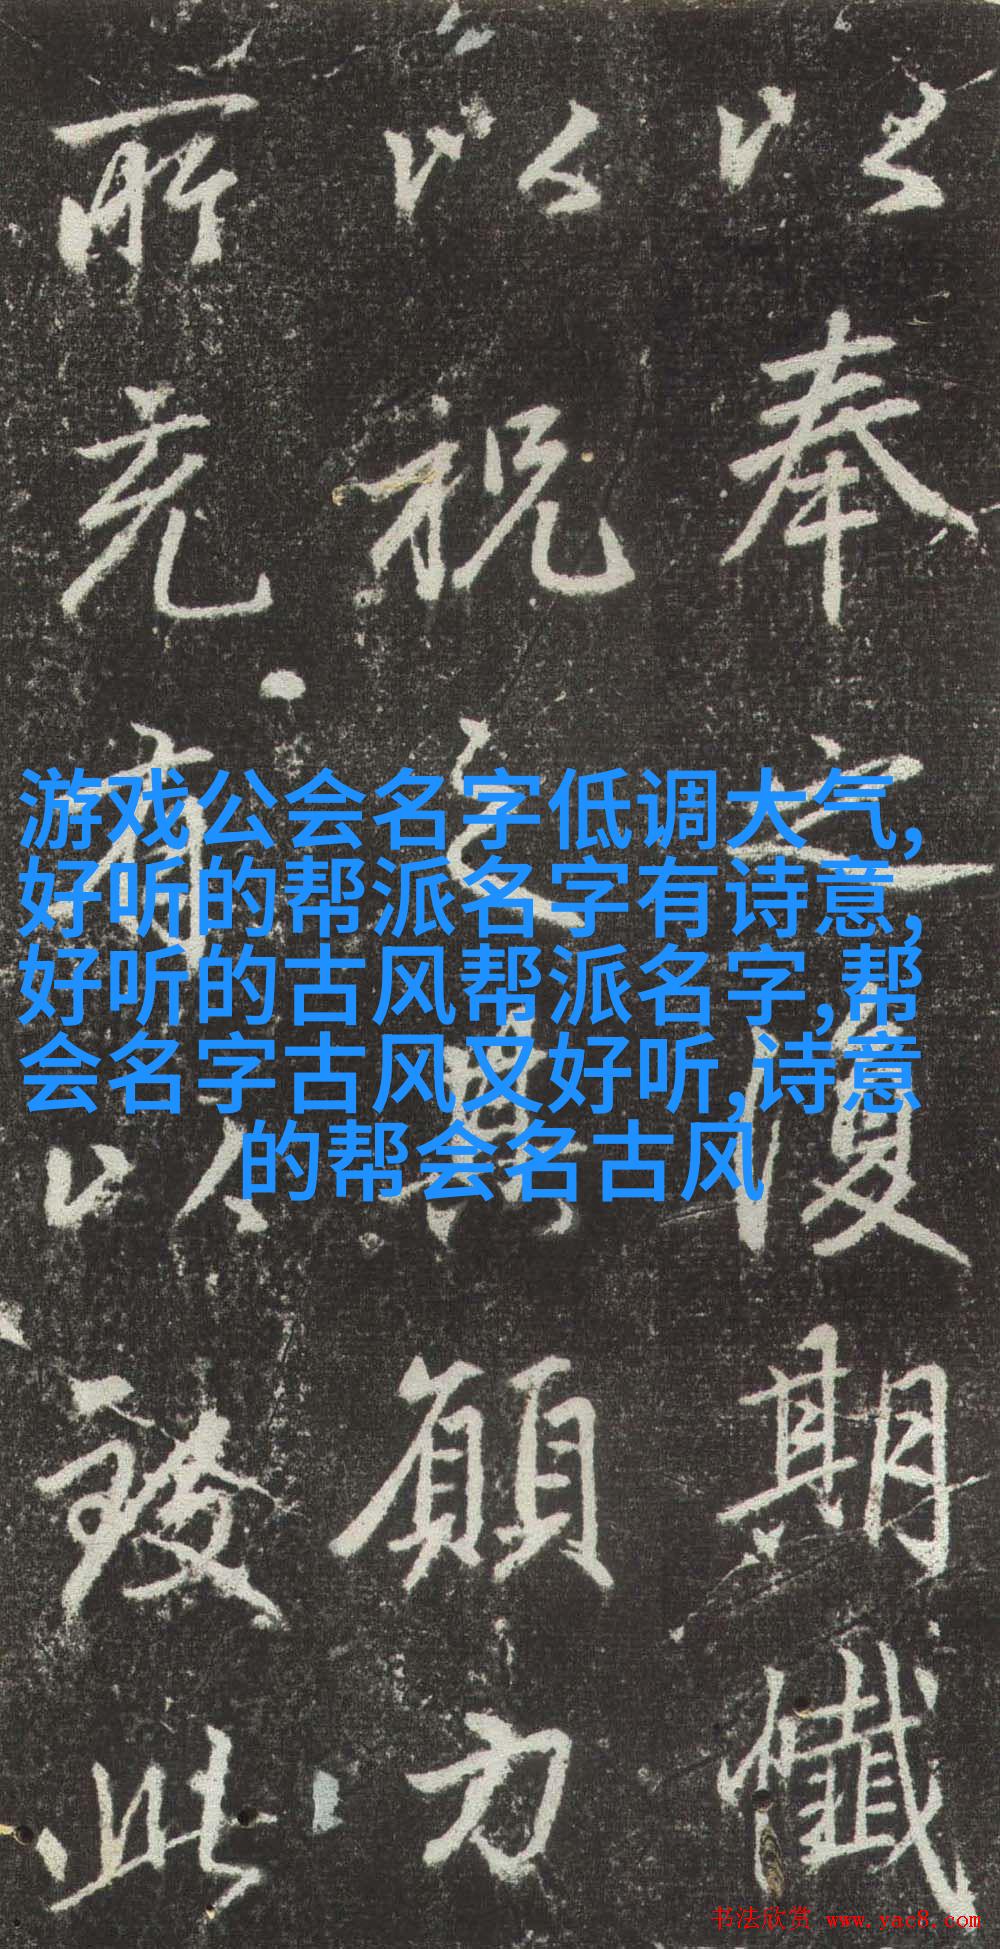 以奉之復期懺
以祝其願力
所有以致此
游戏公会名字低调大气,
好听的帮派名字有诗意,
好听的古风帮派名字,帮
会名字古风又好听,诗意
的帮会名古风
书法欣赏 www.yac8.com